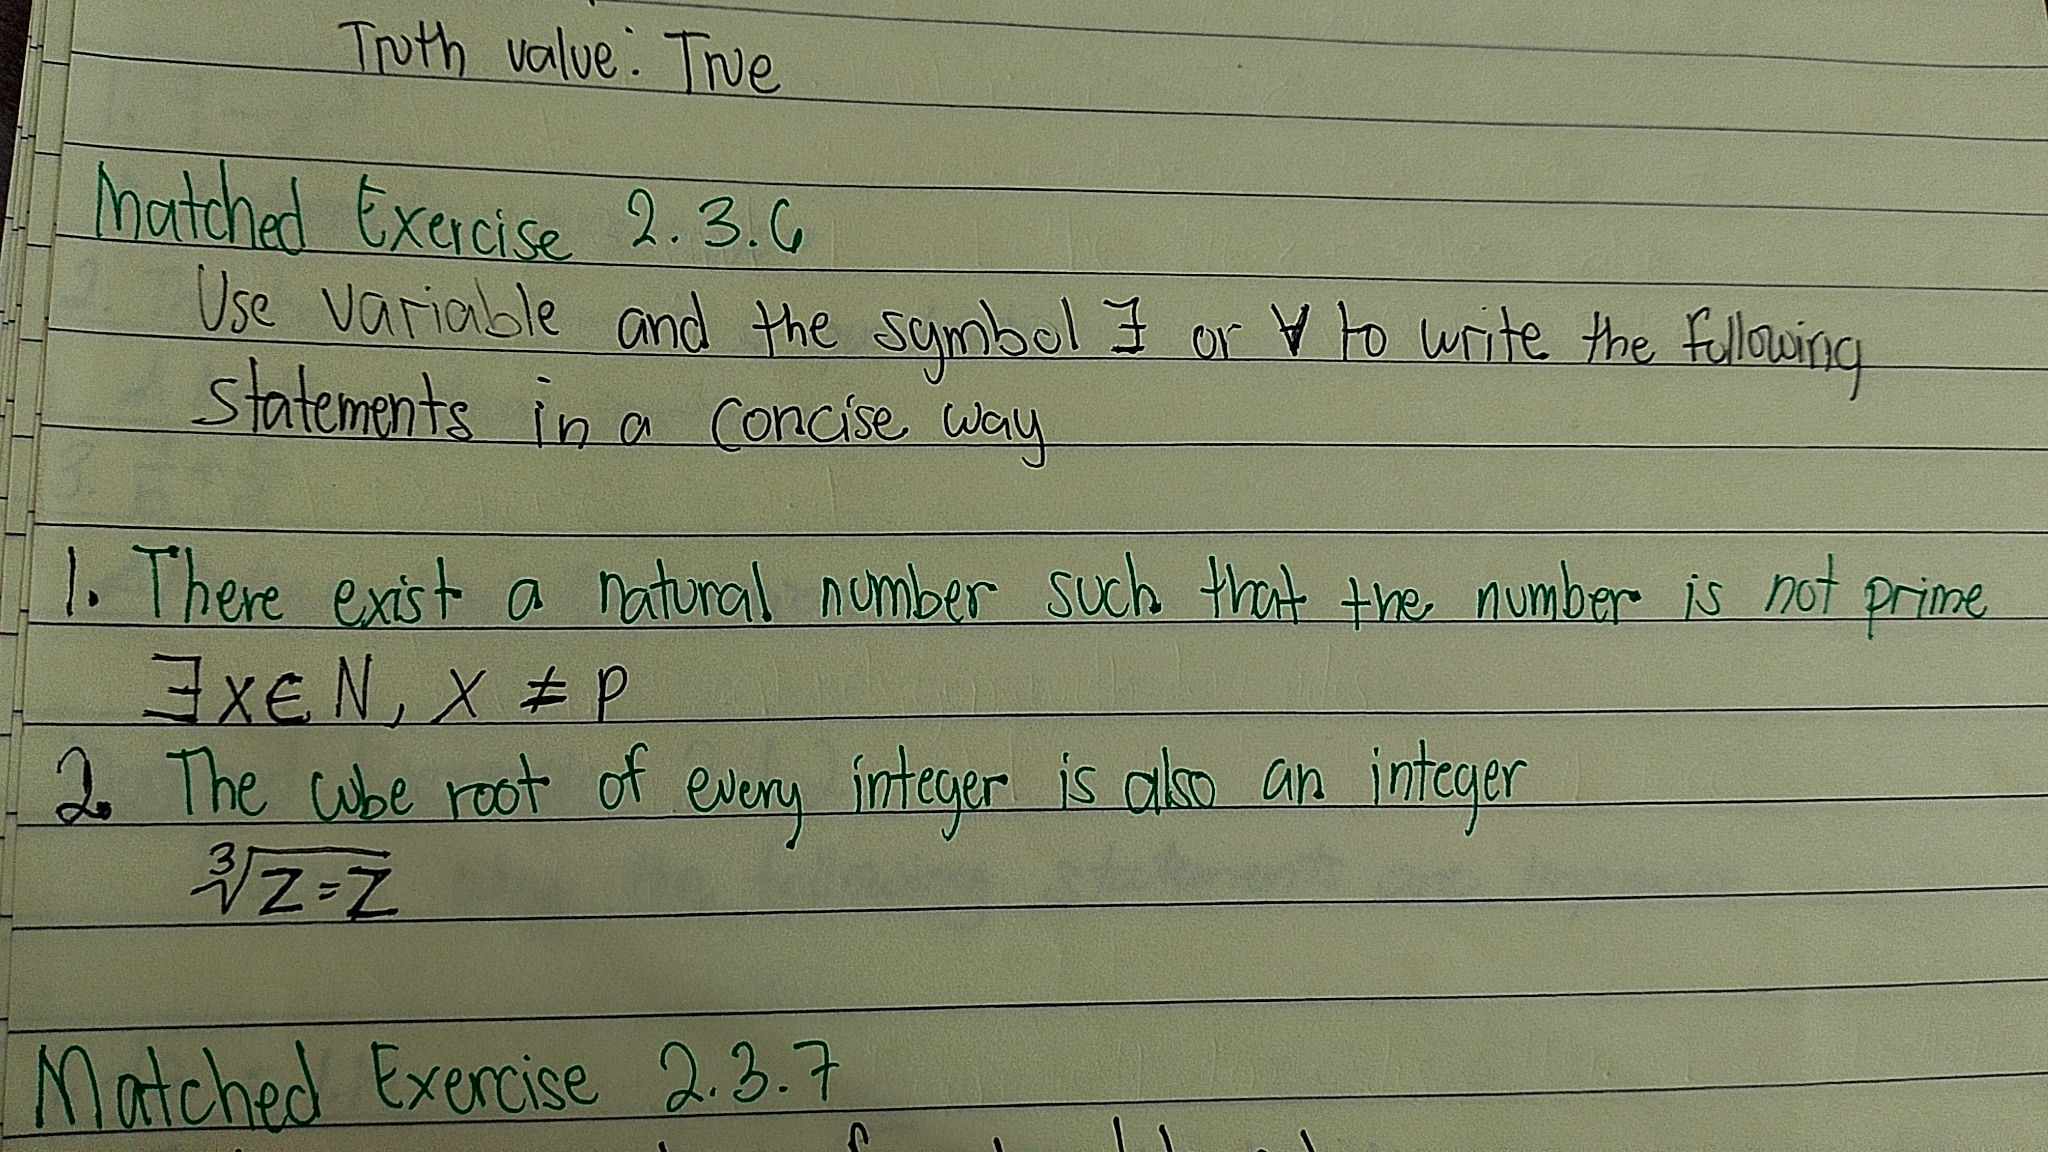 Truth value: True
Matched Exercise 2.3.6
Use variable and the symbol ∃ or ∀ to write the following
statements in a concise way
1. There exist a natural number such that the number is not prime
∃x∈N, x ≠ p
2. The cube root of every integer is also an integer
∛Z=Z
Matched Exercise 2.3.7